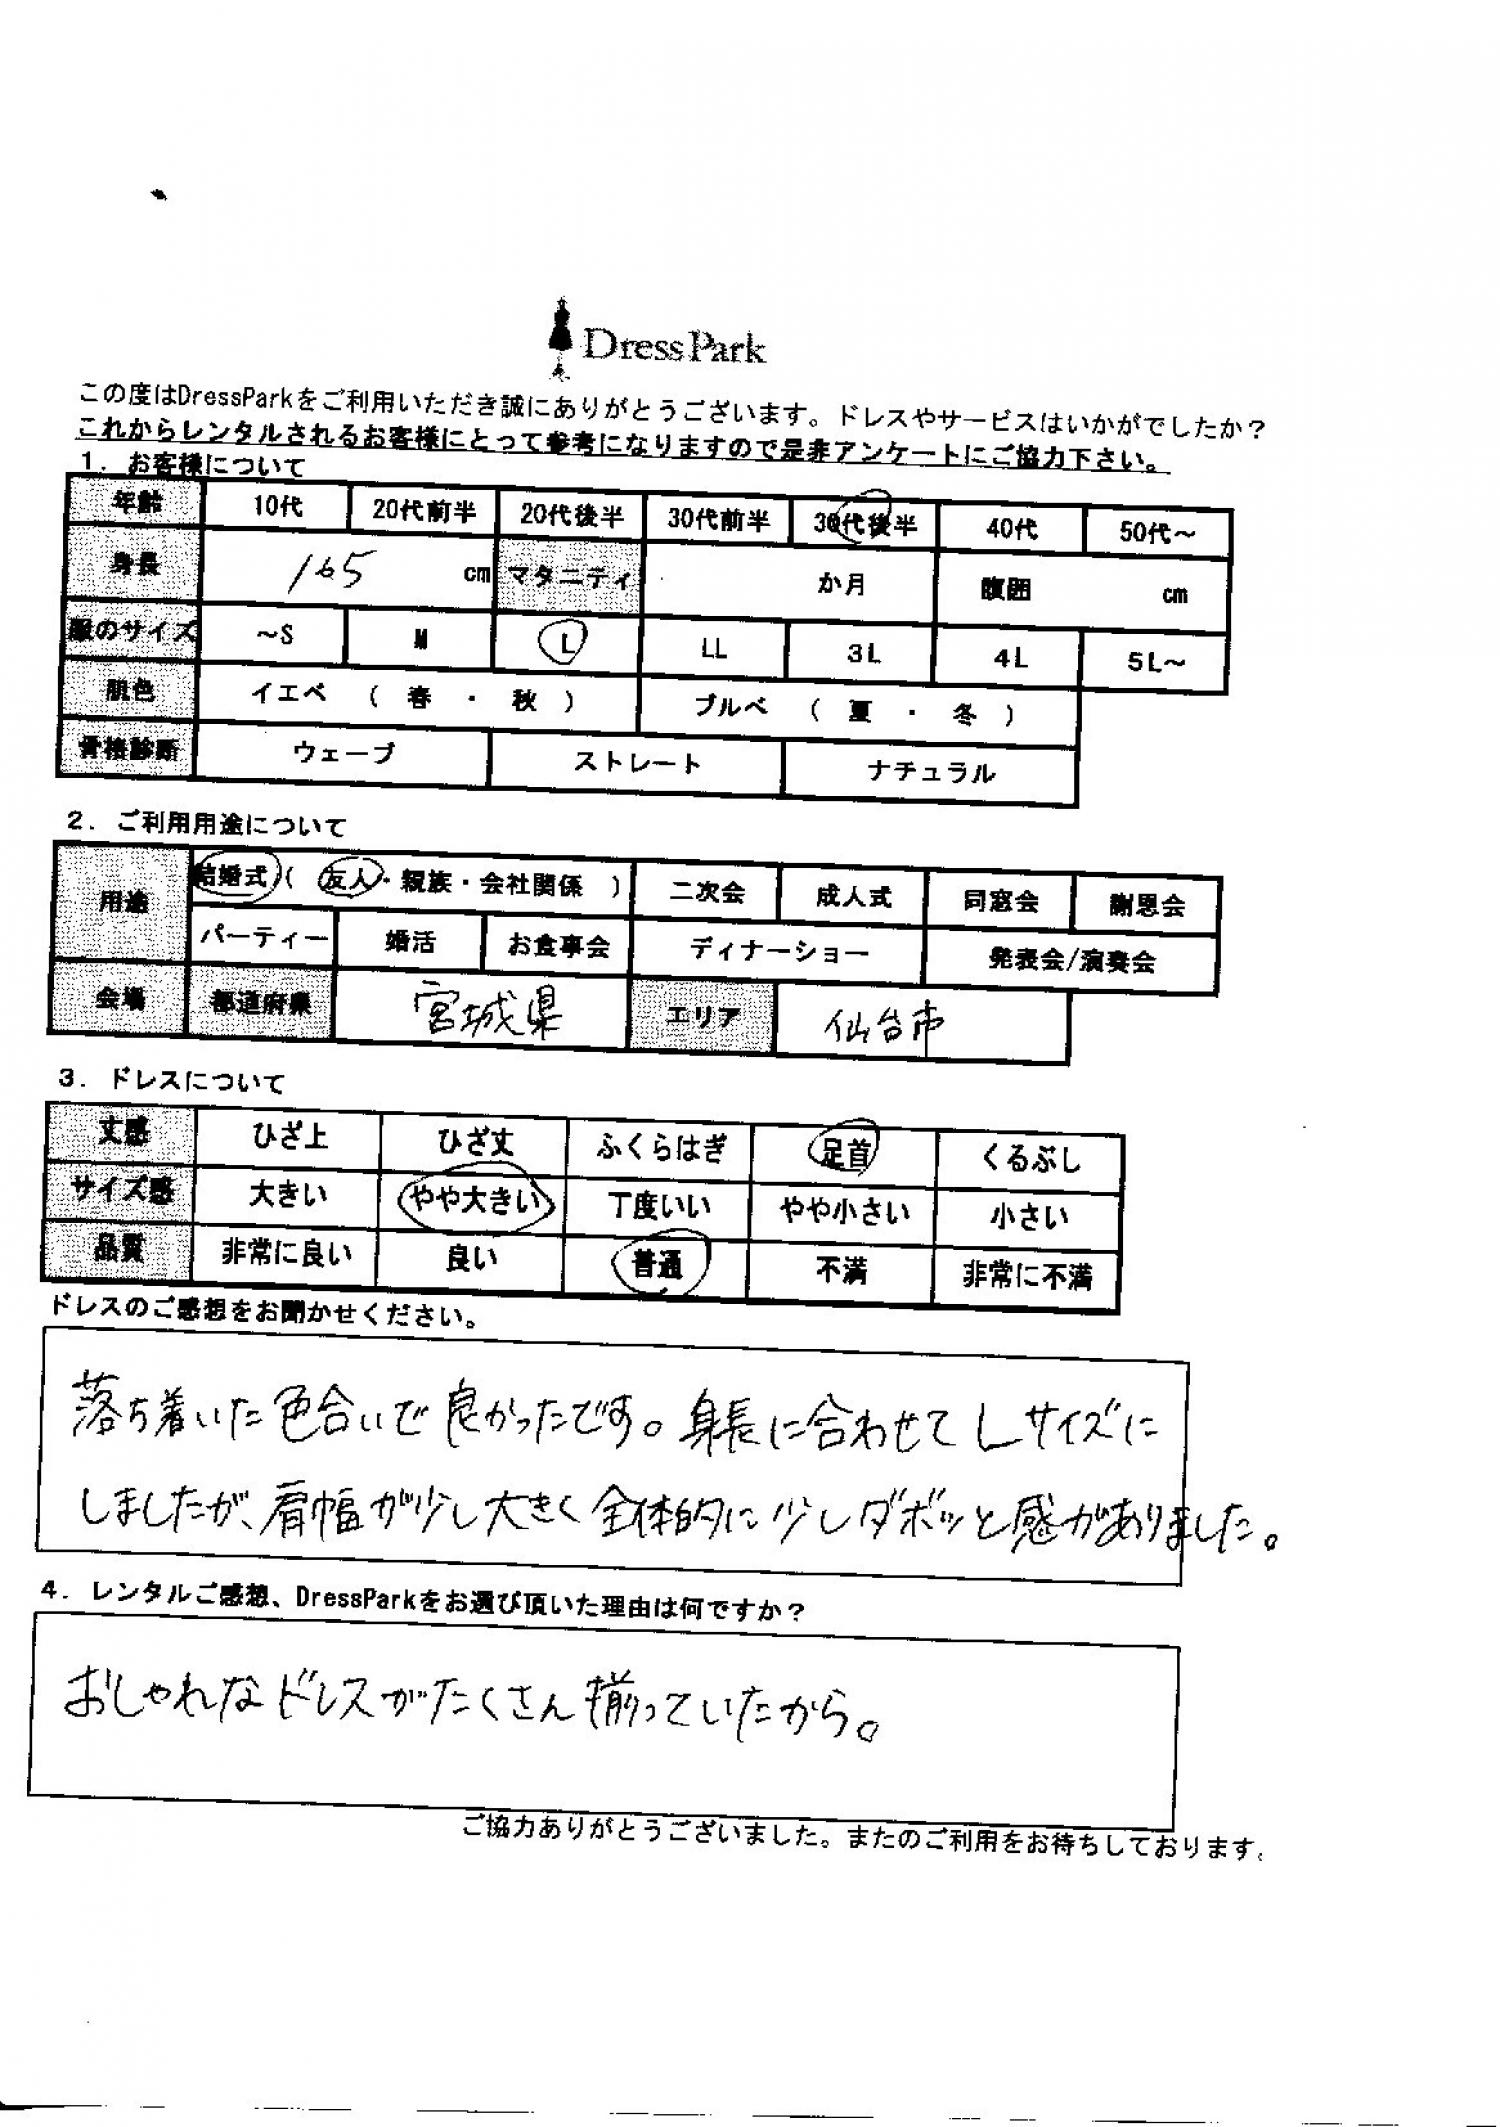 DressPark
この度はDressParkをご利用いただき誠にありがとうございます。ドレスやサービスはいかがでしたか？
これからレンタルされるお客様にとって参考になりますので是非アンケートにご協力下さい。
1. お客様について
年齢 10代 20代前半 20代後半 30代前半 30代後半 40代 50代～
身長 165 cm マタニティ か月 腹囲 cm
服のサイズ ～S M L LL 3L 4L 5L～
肌色 イエベ （ 春 ・ 秋 ） ブルベ （ 夏 ・ 冬 ）
骨格診断 ウェーブ ストレート ナチュラル
2. ご利用用途について
用途 結婚式（ 友人・親族・会社関係 ） 二次会 成人式 同窓会 謝恩会
パーティー 婚活 お食事会 ディナーショー 発表会/演奏会
会場 都道府県 宮城県 エリア 仙台市
3. ドレスについて
丈感 ひざ上 ひざ丈 ふくらはぎ 足首 くるぶし
サイズ感 大きい やや大きい 丁度いい やや小さい 小さい
品質 非常に良い 良い 普通 不満 非常に不満
ドレスのご感想をお聞かせください。
落ち着いた色合いで良かったです。身長に合わせてLサイズに
しましたが、肩幅が少し大きく全体的に少しダボッと感がありました。
4. レンタルご感想、DressParkをお選び頂いた理由は何ですか？
おしゃれなドレスがたくさん揃っていたから。
ご協力ありがとうございました。またのご利用をお待ちしております。